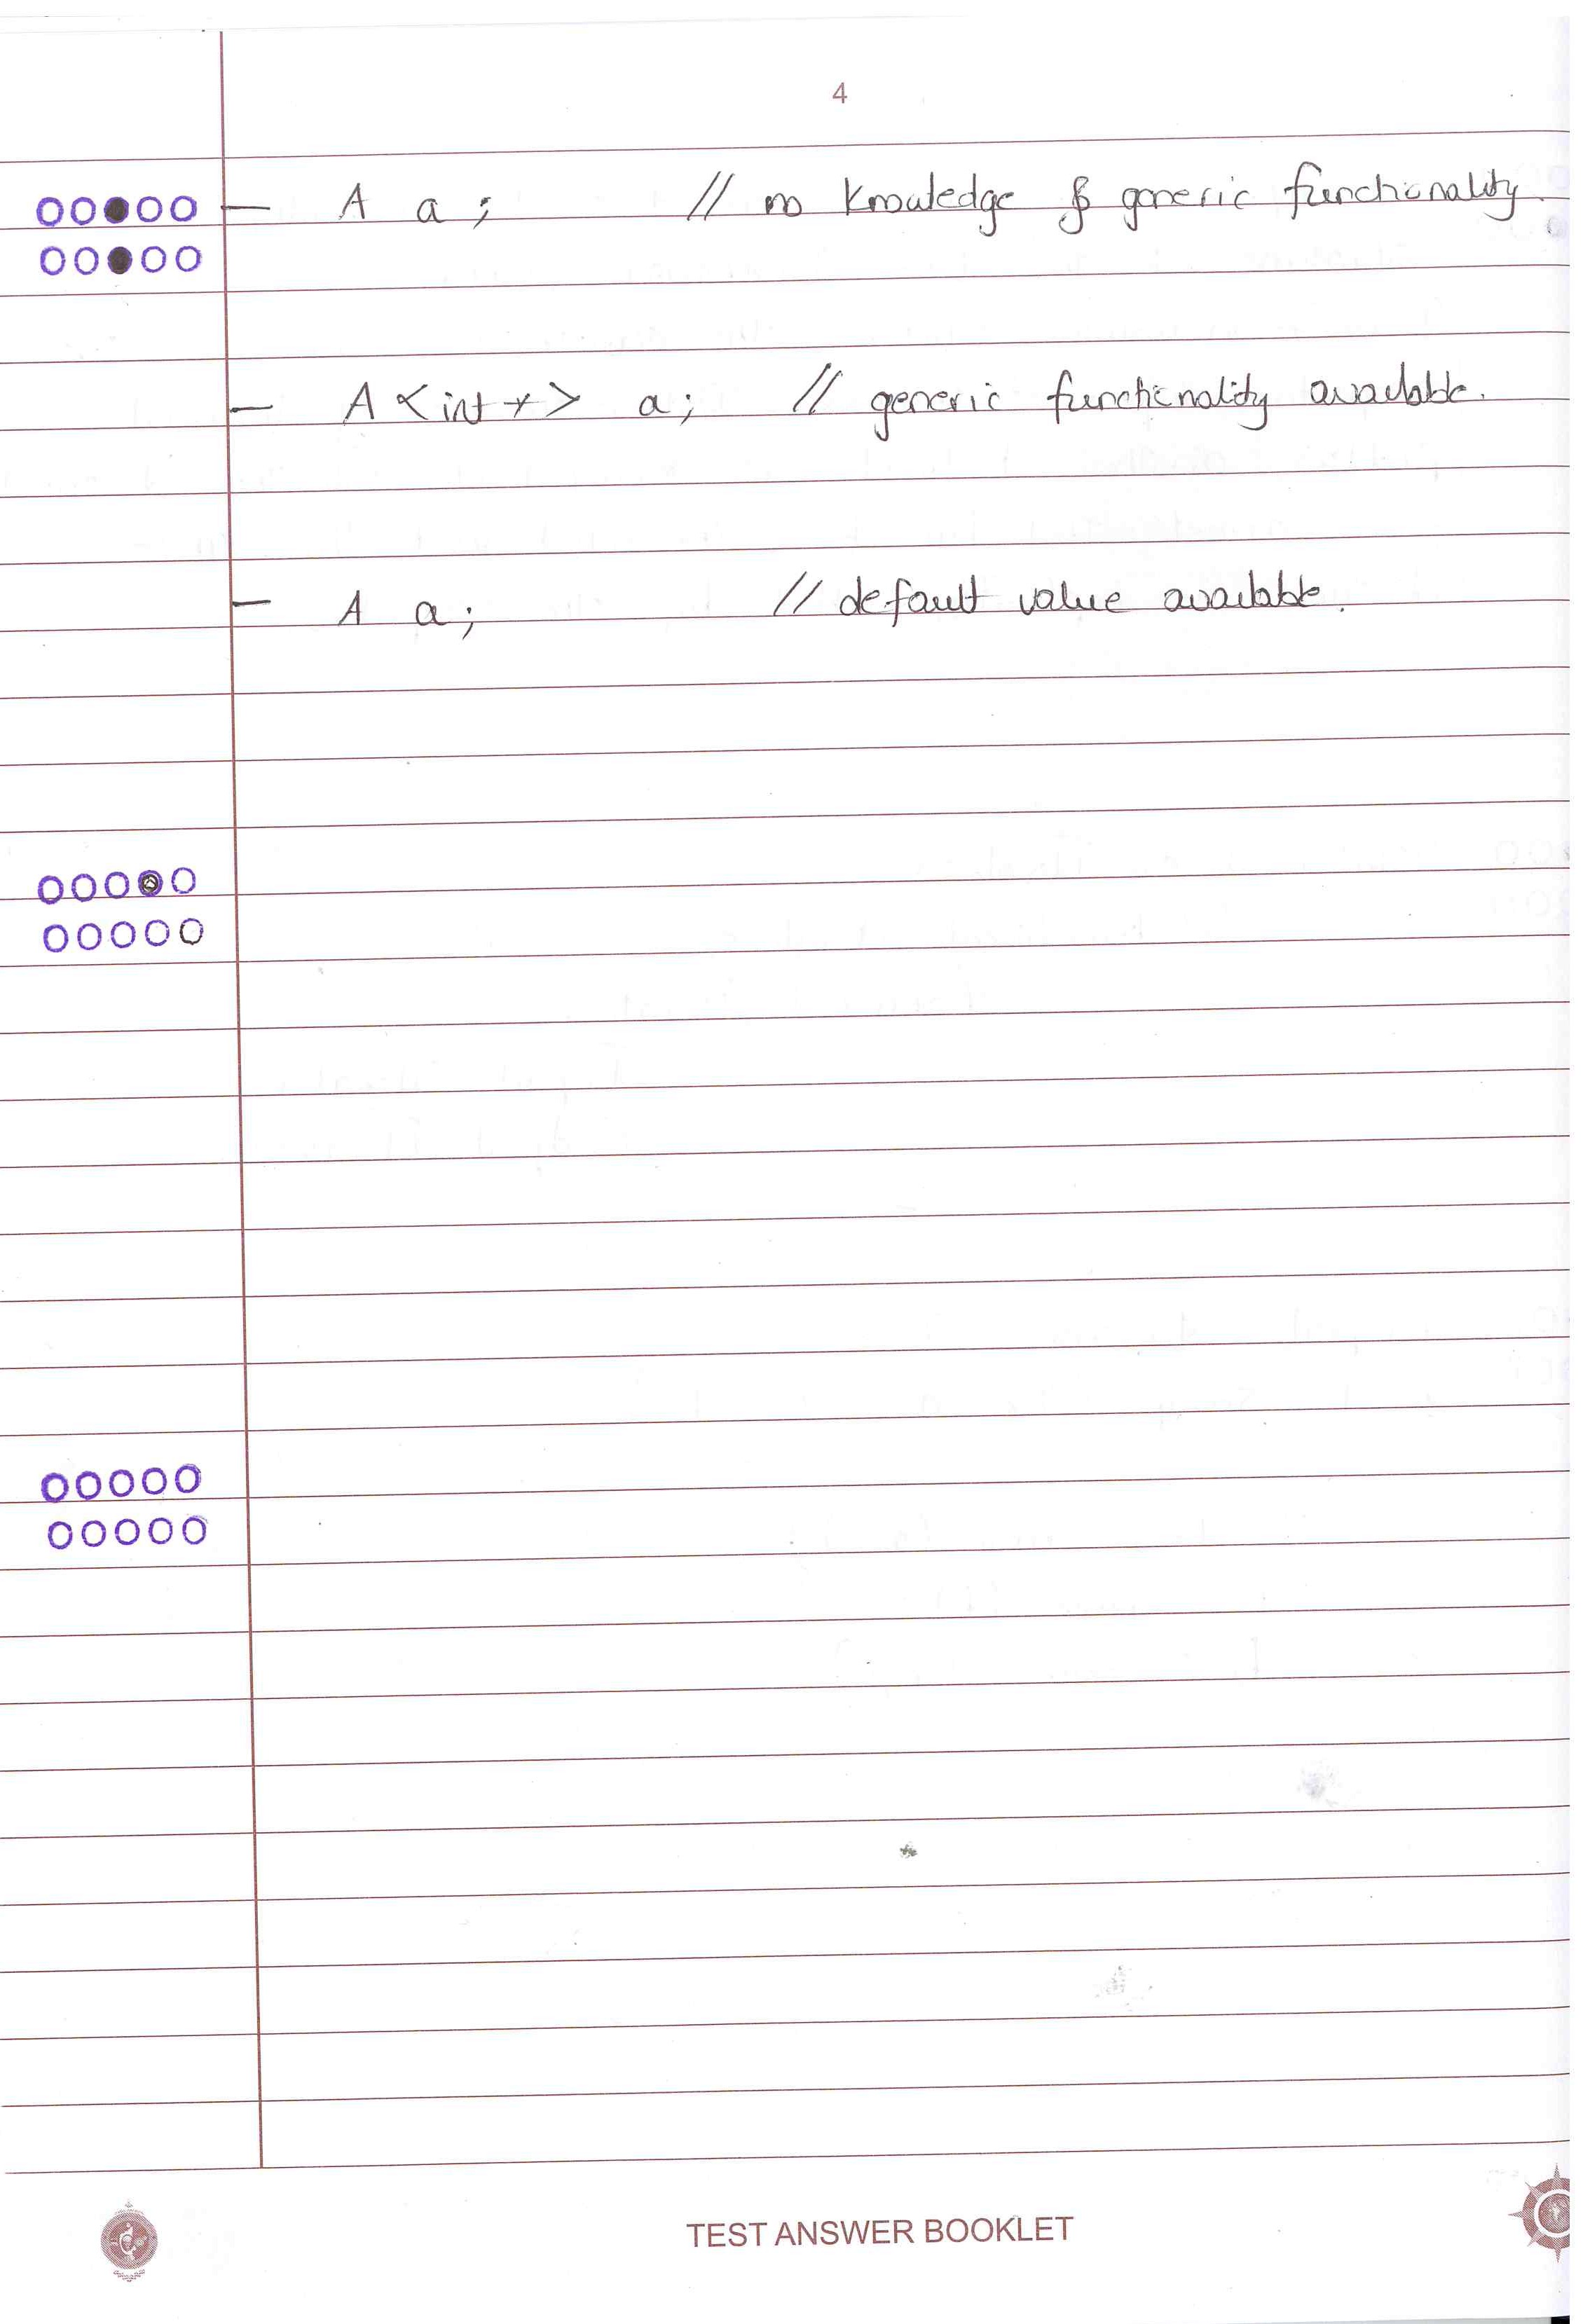 4
- A a; // no knowledge of generic functionality.
- A <int *> a; // generic functionality available.
- A a; // default value available.
TEST ANSWER BOOKLET